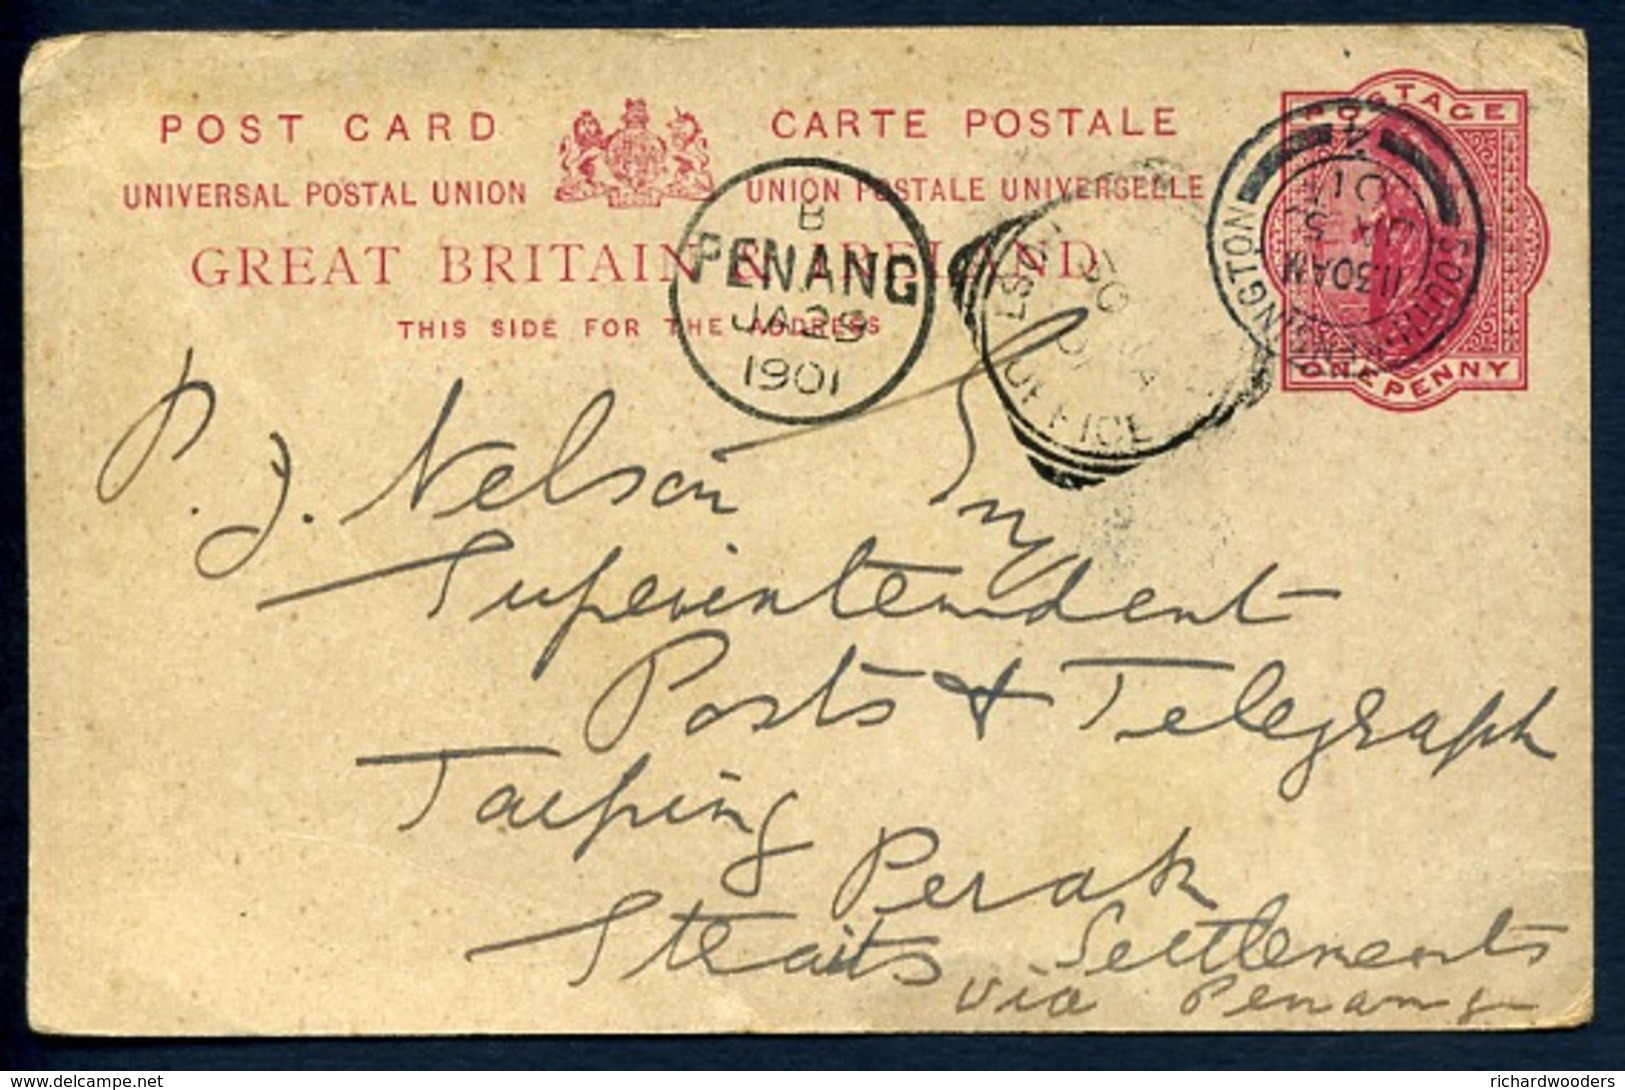 POST CARD
CARTE POSTALE
UNIVERSAL POSTAL UNION
UNION POSTALE UNIVERSELLE
GREAT BRITAIN & IRELAND
THIS SIDE FOR THE ADDRESS
POSTAGE
ONE PENNY
B
PENANG
JA 29
1901
OFFICE
SOUTH KENSINGTON
11.30 AM
JA 5
01
P. J. Nelson Esq
Superintendent
Posts & Telegraph
Taiping
Perak
Straits Settlements
via Penang
© delcampe.net
richardwooders